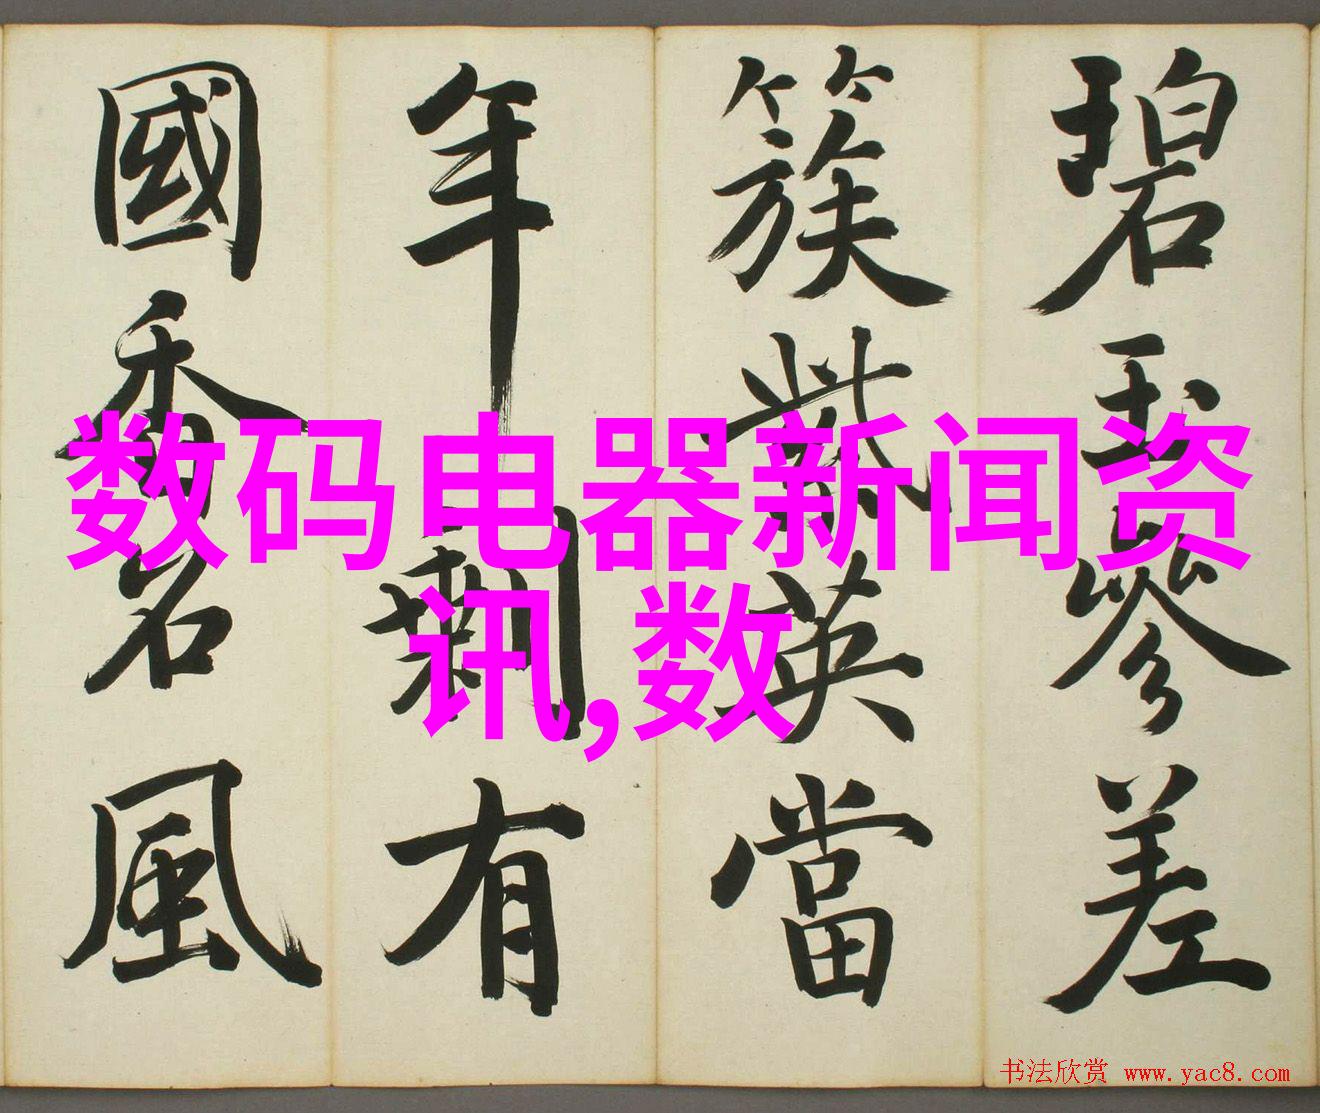 碧玉參差
簇紫英當
年剩有
國香名風
数码电器新闻资
讯,数
书法欣赏 www.yac8.com